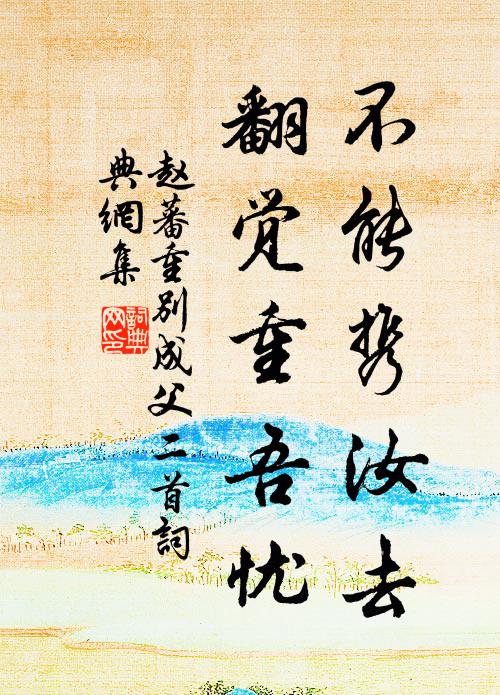 不能携汝去
翻觉重吾忧
赵蕃重别成父二首词
典網集
詞典
网印